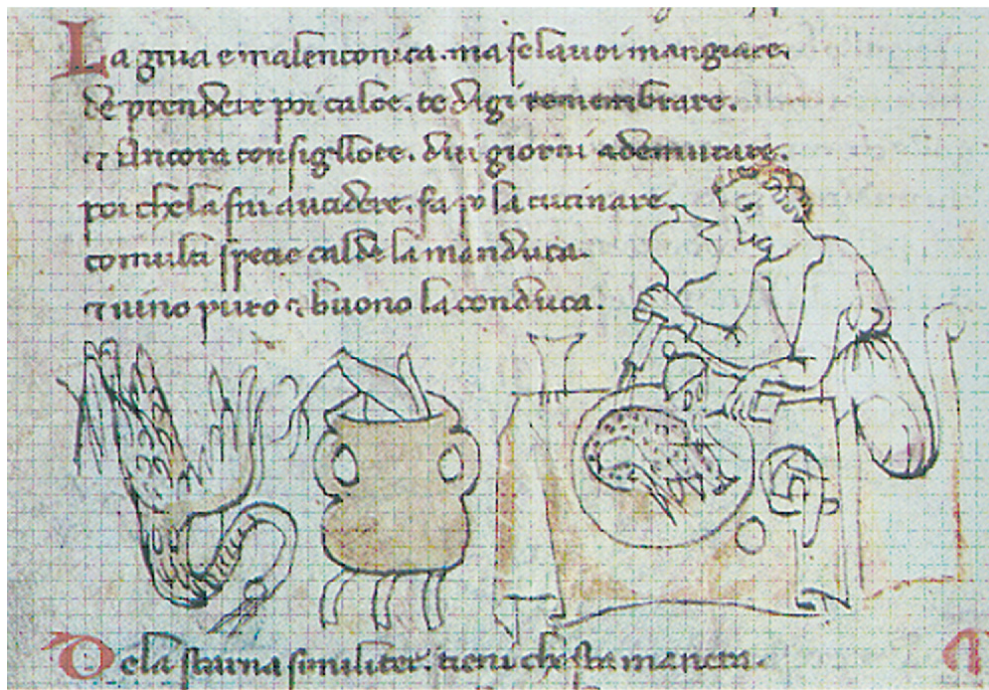 La grua e malenconica. ma se la uoi mangiare.
de prendere poi calde. te digi remembrare.
⁊ Ancora consigllote. dui giorni ademurare.
poi che la fai aucidere. fa la cucinare.
co multi specie calde la manduca.
⁊ uino puro ⁊ buono la conduca.
Dela starna similiter. tieni chesta manera.